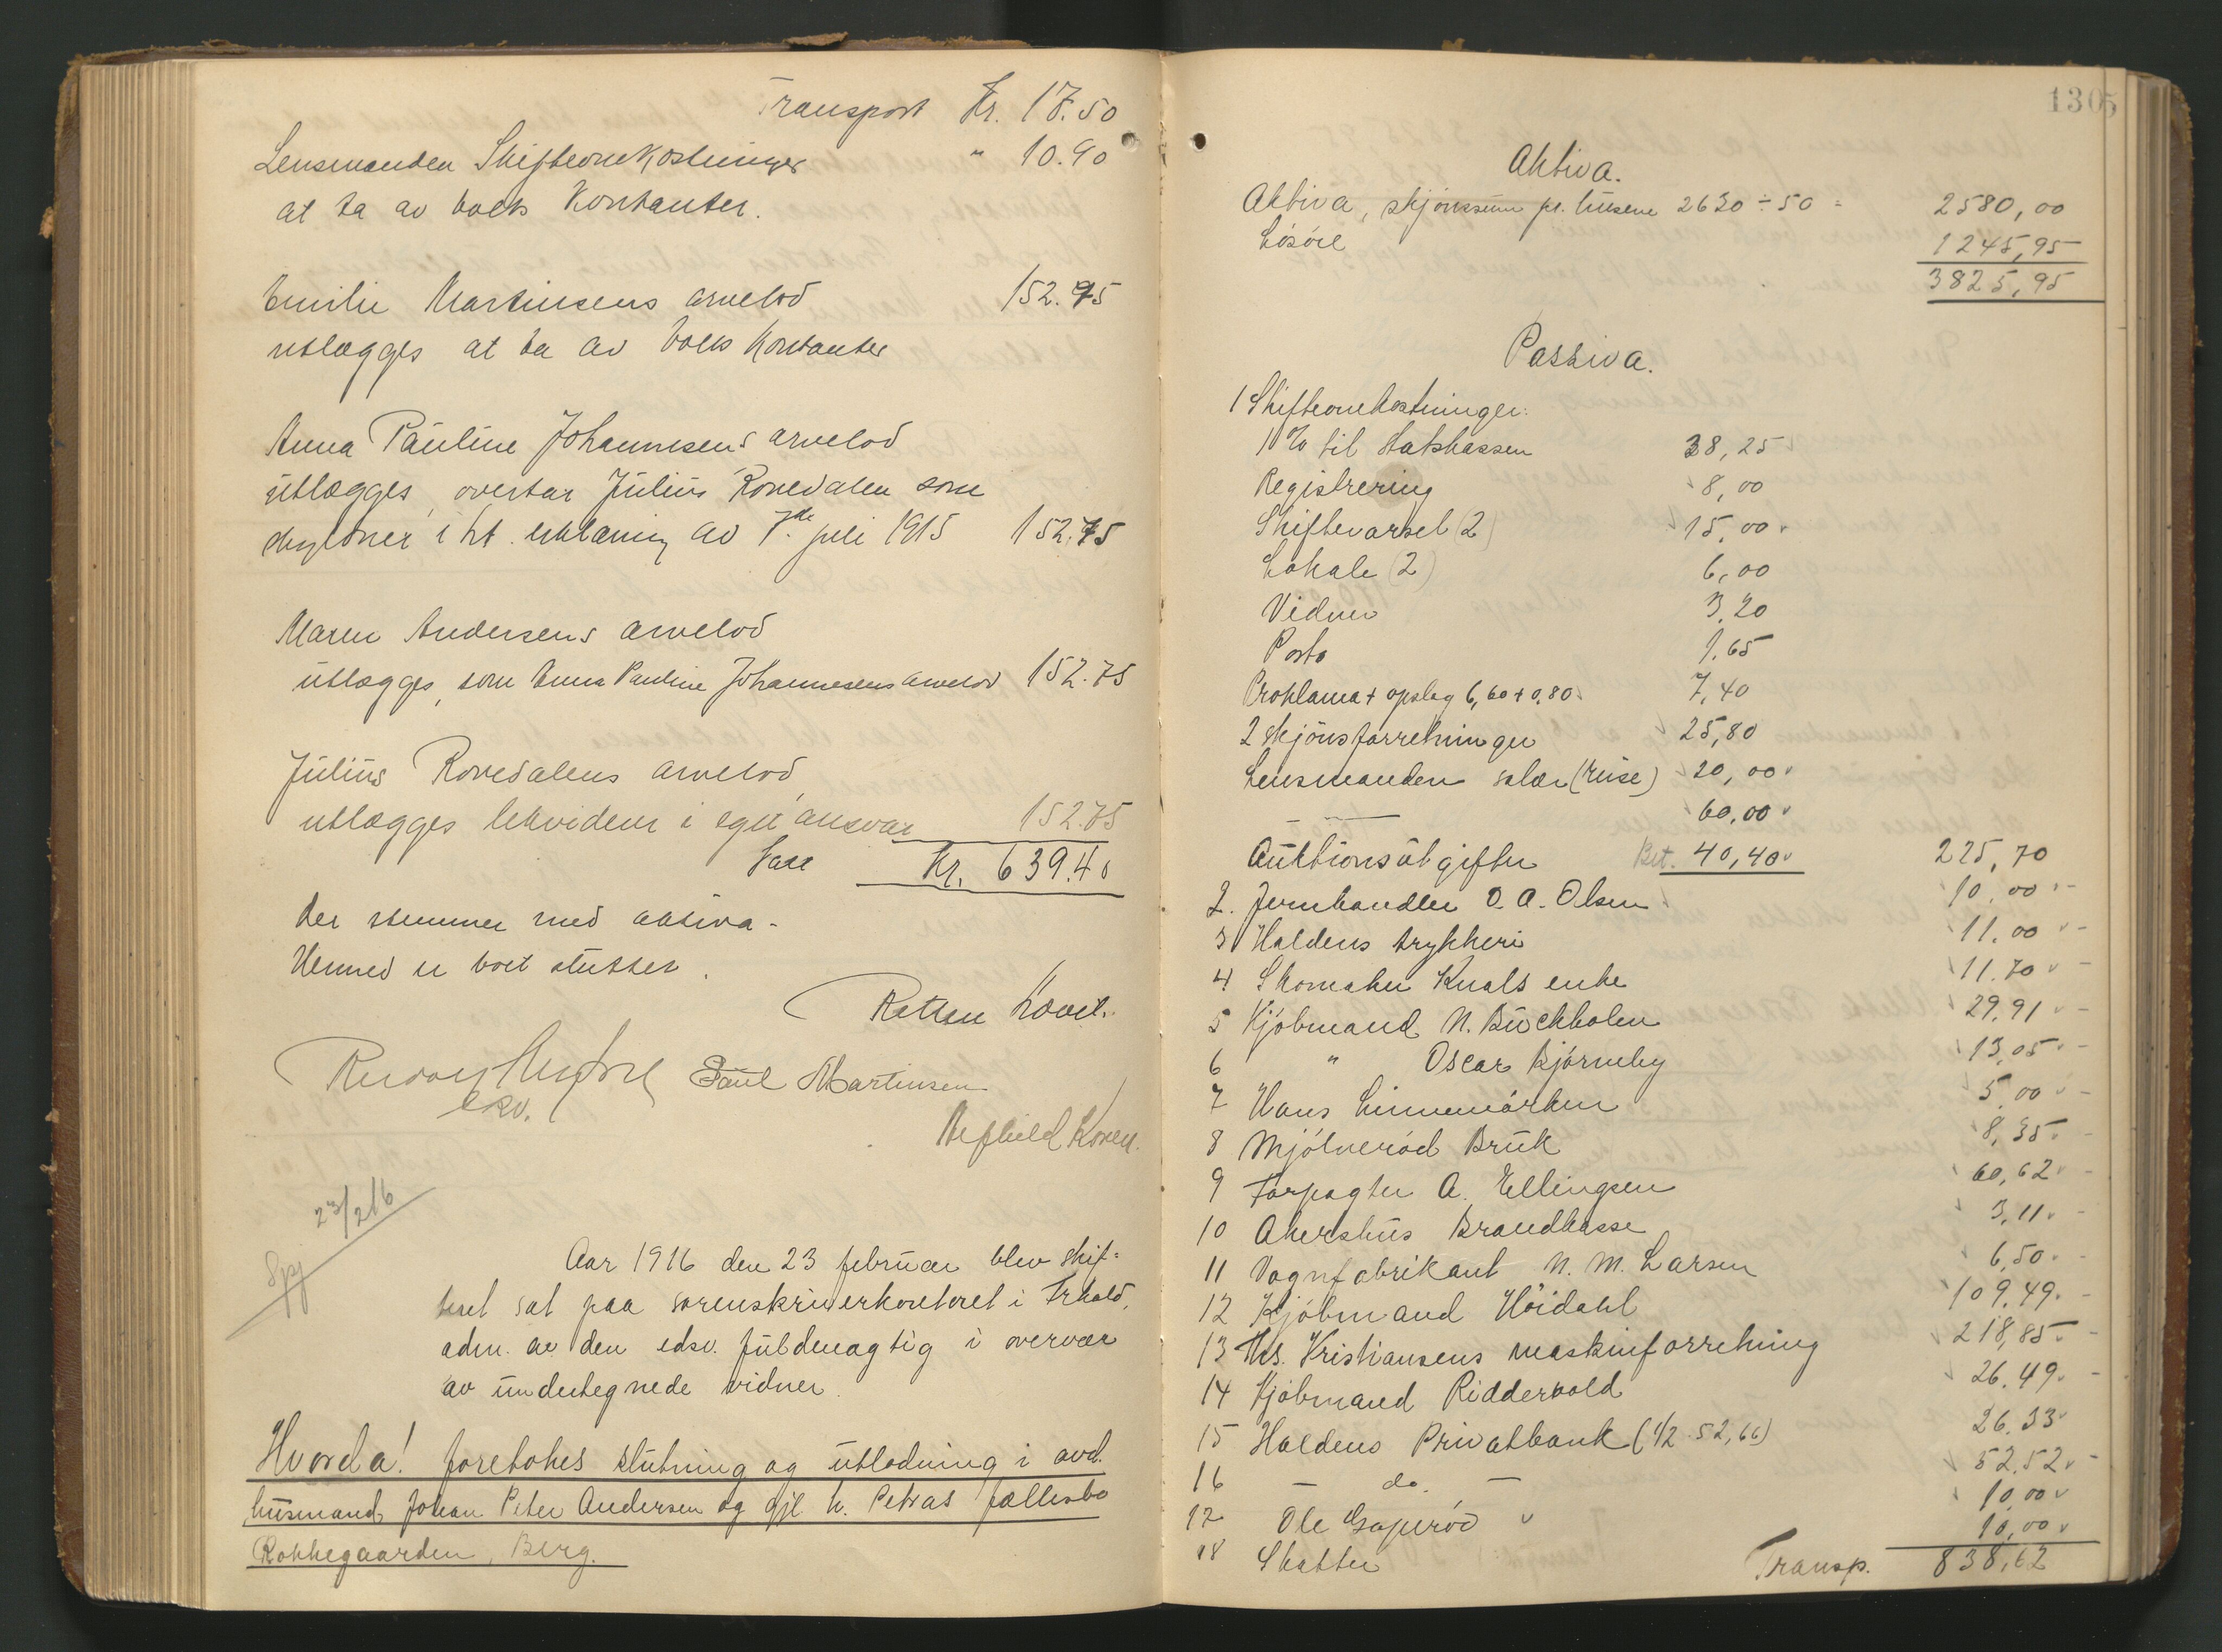 Transport Kr. 17.50
Lensmanden Skifteomkostninger " 10.90
at ta av boets Kontanter.
Emilie Martinsens arvelod 152.75
utlægges at ta av boets Kontanter
Anna Pauline Johannesens arvelod
utlægges, overtar Julius Rovedalen som
skyldner i ht. erklæring av 7de juli 1915 152.75
Maren Andersens arvelod
utlægges, som Anna Pauline Johannesens arvelod 152.75
Julius Rovedalens arvelod
utlægges likvideres i eget ansvar 152.75
Sum Kr. 639.40
der stemmer med aktiva.
Hermed er boet sluttet.
Retten hævet.
Paul Martinsen
23/2 16
Aar 1916 den 23 februar blev skif=
teret sat paa sorenskriverkontoret i Frhald,
adm. av den edsv. fuldmægtig i overvær
av undertegnede vidner.
Hvorda! foretokes slutning og utlodning i avd.
husmand Johan Peter Andersen og gjl. h. Petras fællesbo
Rokkegaarden, Berg.
1305
Aktiva.
Aktiva, skjønssum pr. husene 2630 ÷ 50 = 2580,00
Løsøre 1245,95
3825,95
Passiva.
1 Skifteomkostninger:
1% til Statskassen 38,25
Registrering 8,00
Skiftevarsel (2) 15,00
Lokale (2) 6,00
Vidner 3,20
Porto 1.65
Proklama + opslag 6,60 + 0,80 7,40
2 skjønsforretninger 25,80
Lensmanden salær (reise) 20,00
— 60,00
Auktionsutgifter Bet. 40,40 225,70
2. Jernhandler O. A. Olsen 10,00
3 Haldens trykkeri 11.00
4 Skomaker Knals enke 11.70
5 Kjøbmand N. Buckholm 29.91
6 " Oscar Bjørneby 13,05
7 Hans Linnemarken 5,00
8 Mjølnerød Bruk 8,35
9 Forpagter A. Ellingsen 60,62
10 Akershus Brandkasse 3,11
11 Vognfabrikant N. M. Larsen 6,50
12 Kjøbmand Höidahl 109,49
13 Ths. Kristiansens maskinforretning 218,85
14 Kjøbmand Riddervold 26.49
15 Haldens Privatbank (1/2 52,66) 26.33
16 — do. — 52.52
17 Ole 10,00
18 Skatter 10,00
Transp. 838,62